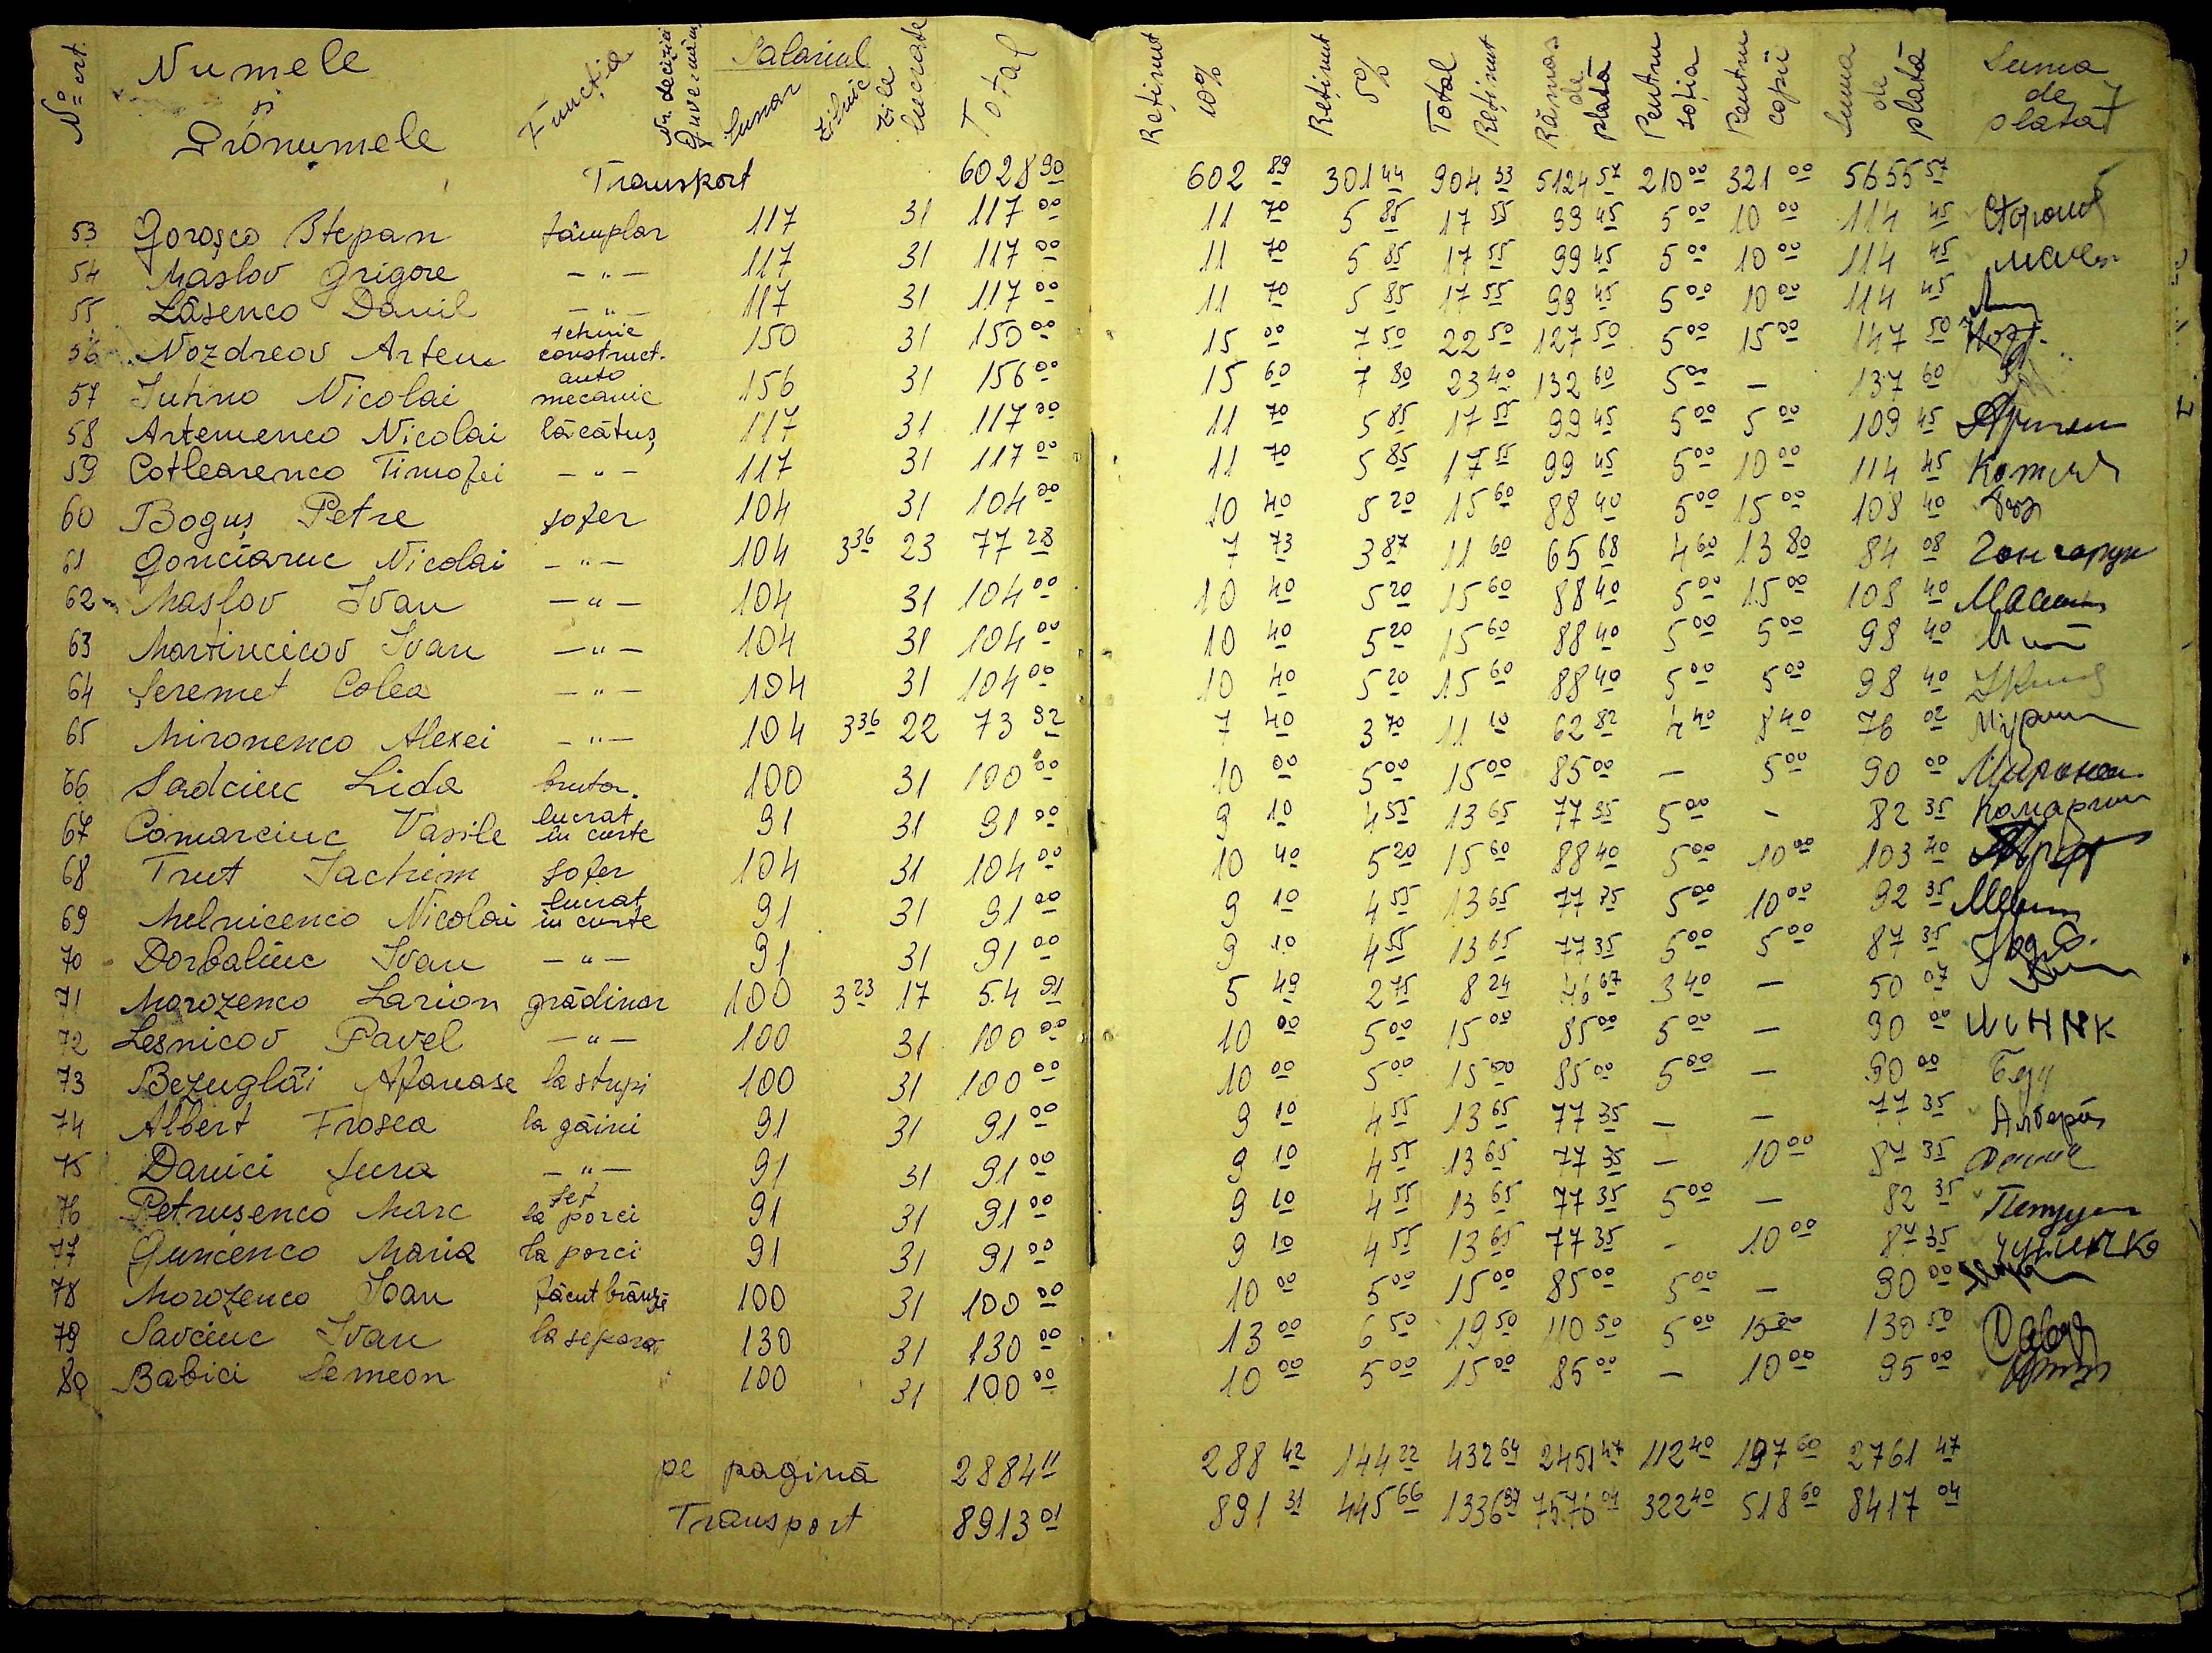 No crt. Numele și Pronumele Funcția Nr. decizia Guvernămân Salariul Lunar Zilnic Zile lucrate Total Reținut 10% Reținut 5% Total Reținut Rămas de plată Pentru soția Pentru copii Suma de plată Suma de plată
Transport 6028 90 602 89 301 44 904 33 5124 57 210 00 321 00 5655 57
53 Goroșco Stepan tâmplar 117 31 117 00 11 70 5 85 17 55 99 45 5 00 10 00 114 45
54 Maslov Grigore —"— 117 31 117 00 11 70 5 85 17 55 99 45 5 00 10 00 114 45
55 Lâsenco Danil —"— 117 31 117 00 11 70 5 85 17 55 99 45 5 00 10 00 114 45
56 Nozdreov Artem tehnic construct. 150 31 150 00 15 00 7 50 22 50 127 50 5 00 15 00 147 50
57 Iuhno Nicolai auto mecanic 156 31 156 00 15 60 7 80 23 40 132 60 5 00 — 137 60
58 Artemenco Nicolai lăcătuș 117 31 117 00 11 70 5 85 17 55 99 45 5 00 5 00 109 45
59 Cotlearenco Timofei —"— 117 31 117 00 11 70 5 85 17 55 99 45 5 00 10 00 114 45
60 Boguș Petre șofer 104 31 104 00 10 40 5 20 15 60 88 40 5 00 15 00 108 40
61 Gonciaruc Nicolai —"— 104 3 36 23 77 28 7 73 3 87 11 60 65 68 4 60 13 80 84 08 Гончарук
62 Maslov Ivan —"— 104 31 104 00 10 40 5 20 15 60 88 40 5 00 15 00 108 40
63 Martincicov Ivan —"— 104 31 104 00 10 40 5 20 15 60 88 40 5 00 5 00 98 40
64 Șeremet Colea —"— 104 31 104 00 10 40 5 20 15 60 88 40 5 00 5 00 98 40
65 Mironenco Alexei —"— 104 3 36 22 73 92 7 40 3 70 11 10 62 82 4 40 8 40 76 02
66 Sadciuc Lida brutar. 100 31 100 00 10 00 5 00 15 00 85 00 — 5 00 90 00
67 Comarciuc Vasile lucrat în curte 91 31 91 00 9 10 4 55 13 65 77 35 5 00 - 82 35
68 Trut Iachim șofer 104 31 104 00 10 40 5 20 15 60 88 40 5 00 10 00 103 40
69 Melnicenco Nicolai lucrat în curte 91 31 91 00 9 10 4 55 13 65 77 35 5 00 10 00 92 35
70 Dorbaliuc Ivan —"— 91 31 91 00 9 10 4 55 13 65 77 35 5 00 5 00 87 35
71 Morozenco Larion grădinar 100 3 23 17 54 91 5 49 2 75 8 24 46 67 3 40 — 50 07
72 Lesnicov Pavel —"— 100 31 100 00 10 00 5 00 15 00 85 00 5 00 — 90 00
73 Bezuglâi Afanase la stupi 100 31 100 00 10 00 5 00 15 00 85 00 5 00 — 90 00
74 Albert Frosea la găini 91 31 91 00 9 10 4 55 13 65 77 35 — — 77 35
75 Danici Jura —"— 91 31 91 00 9 10 4 55 13 65 77 35 — 10 00 87 35
76 Petrusenco Marc șef la porci 91 31 91 00 9 10 4 55 13 65 77 35 5 00 — 82 35
77 Guncenco Maria la porci 91 31 91 00 9 10 4 55 13 65 77 35 - 10 00 87 35
78 Morozenco Ivan făcut brânză 100 31 100 00 10 00 5 00 15 00 85 00 5 00 — 90 00
79 Savciuc Ivan la separa 130 31 130 00 13 00 6 50 19 50 110 50 5 00 15 00 130 50
80 Babici Semeon 100 31 100 00 10 00 5 00 15 00 85 00 — 10 00 95 00
pe pagină 2884 11 288 42 144 22 432 64 2451 47 112 40 197 60 2761 47
Transport 8913 01 891 31 445 66 1336 97 7576 04 322 40 518 60 8417 04